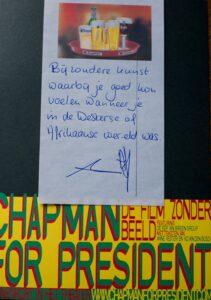 Bijzondere kunst
waarbij je goed kon
voelen wanneer je
in de Westerse of
Afrikaanse wereld was.
CHAPMAN
DE FILM ZONDER
BEELD
FOR PRESIDENT
WWW.CHAPMANFORPRESIDENT.COM